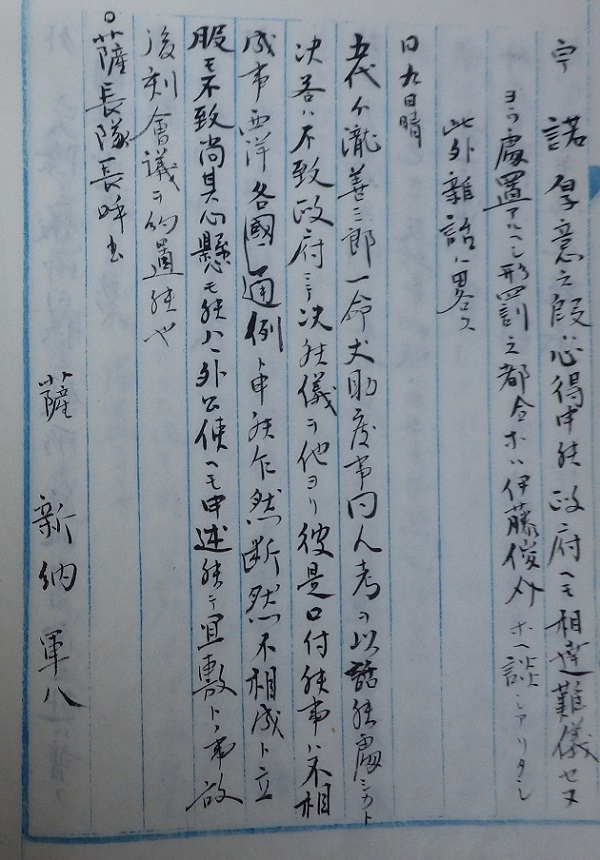 宇 諾 厚意之段ハ心得申候政府ヘモ相達難儀セヌ
ヨウ處置アルヘシ形罰之都合ホハ伊藤俊介ホヘ談シアリタシ
此外雑話ハ畧ス
同九日晴
五代ゟ瀧善三郎一命丈助度事同人考ヲ以話候處シカト
决答ハ不致政府ニテ决候儀ヲ他ヨリ彼是口付候事ハ不相
成事西洋各國通例ト申候乍然断然不相成ト立
服モ不致尚其心懸モ候ハヽ外公使ヘモ申述候テ宜敷トノ事故
後刻會議ヲ約置候也
薩長隊長呼出
薩 新納軍八